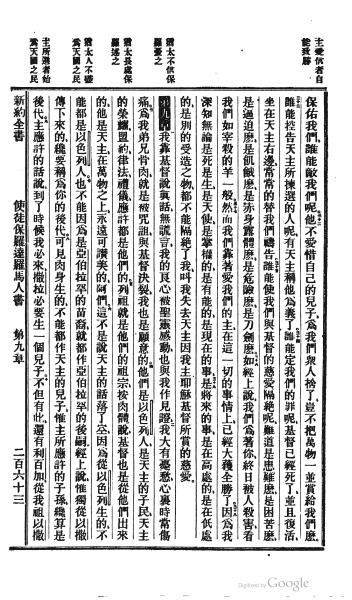 主愛信者自
能致勝
猶太不信保
羅憂之
猶太長處保
羅述之
猶太人不礙
爲天國之民
主所選者始
爲天國之民
保佑我們、誰能敵我們呢、他不愛惜自己的兒子、爲我們衆人捨了、豈不把萬物一並賞給我們麽、
誰能控告天主所揀選的人呢、有天主稱他爲義了、誰能定我們的罪呢、基督已經死了、並且復活、
坐在天主右邊、常常的替我們禱告、誰能使我們與基督的慈愛隔絕呢、難道是患難麽、是困苦麽、
是逼迫麽、是飢餓麽、是赤身露體麽、是危險麽、是刀劍麽、如經上說、我們爲著你、終日被人殺害、看
我們如宰殺的羊一般、然而我們靠著愛我們的主、在這一切的事情上、已經大獲全勝了、因爲我
深知無論是死、是生、是天使、是掌權的、是有能的、是現在的事、是將來的事、是在高處的、是在低處
的、是別的受造之物、都不能隔絕了我、叫我失去天主因我主耶穌基督所賞的慈愛、
第九章 我靠基督說眞話、無謊言、我的良心被聖靈感動、也與我作見證、我大有憂愁、心裏時常傷
痛、爲我弟兄骨肉、就是被咒詛、與基督决裂、我也是願意的、他們是以色列人、是天主的子民、天主
的榮耀、盟約、律法、禮儀、應許、都是他們的、列祖就是他們的祖宗、按肉體說、基督也是從他們出來
的、他是天主、在萬物之上、永遠可讚美的、阿們、這不是說天主的話落了空、因爲從以色列生的、不
能都是以色列人、也不能因爲是亞伯拉罕的苗裔、就都作亞伯拉罕的後嗣、經上說、惟獨從以撒
傳下來的、纔要稱爲你的後代、可見肉身生的、不能都作天主的兒子、惟主所應許的子孫、纔算是
後代、主應許的話說、到了時候我必來、撒拉必要生一個兒子、不但有此、還有利百加、從我祖以撒
新約全書 使徒保羅達羅馬人書 第九章 二百六十三
Digitized by Google